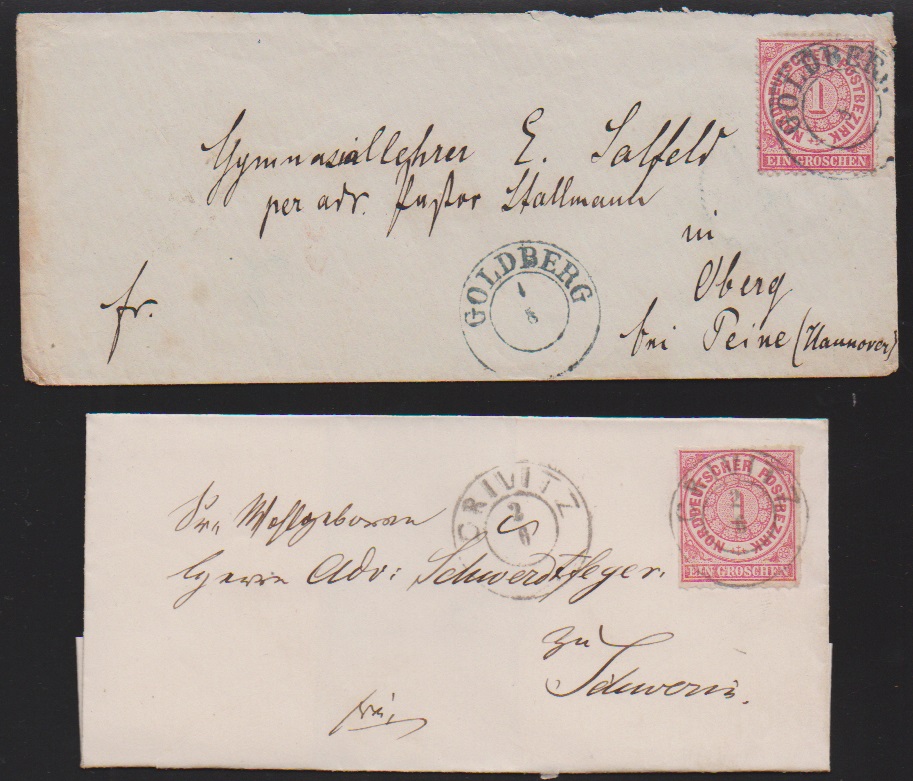 NORDDEUTSCHER POSTBEZIRK
1
EIN GROSCHEN
GOLDBERG
Gymnasiallehrer E. Salfeld
per adr. Pastor Stallmann
in
Oberg
bei Peine (Hannover)
fr.
GOLDBERG
1
8
NORDDEUTSCHER POSTBEZIRK
1
EIN GROSCHEN
CRIVITZ
CRIVITZ
2
6
Sr. Wohlgeboren
Herrn Adv: Schwerdtfeger.
zu
Schwerin.
frei